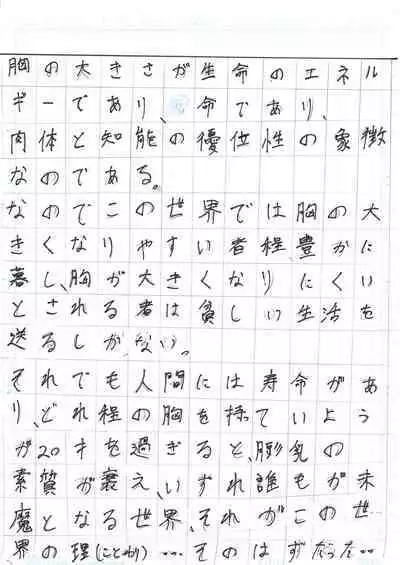 胸の大きさが生命のエネル
ギーであり、命であり、
肉体と知能の優位性の象徴
なのである。
なのでこの世界では胸の大
きくなりやすい者程、豊かに
暮し、胸が大きくなりにくい
とされる者は貧しい生活を
送るしかない。
それでも人間には寿命があ
り、どれ程の胸を持ていよう
が20才を過ぎると、膨乳の
素質が衰え、いずれ誰もが未
魔となる世界、それがこの世
界の理(ことわり)…そのはずだった…